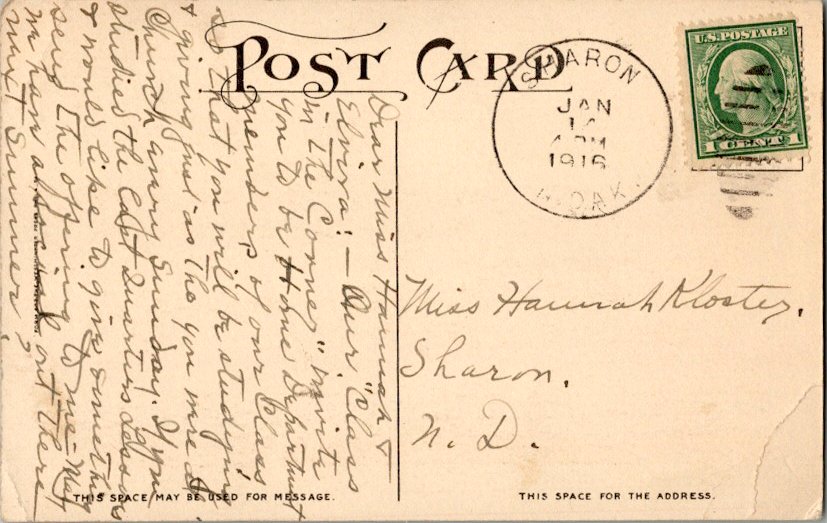 POST CARD
SHARON
JAN
14
4 PM
1916
N. DAK.
U.S. POSTAGE
1 CENT 1
Dear Miss Hannah &
Elvira: — Our "Class
in the Corner" invite
you to be Home Department
members of our Class
so that you will be studying
& giving just as the you were at
Church every Sunday. If you
studied the last Quarters Lessons
& would like to give something
send the offering to me — May
we have a social out there
next Summer?
Miss Hannah Kloster,
Sharon,
N. D.
THIS SPACE MAY BE USED FOR MESSAGE.
THIS SPACE FOR THE ADDRESS.